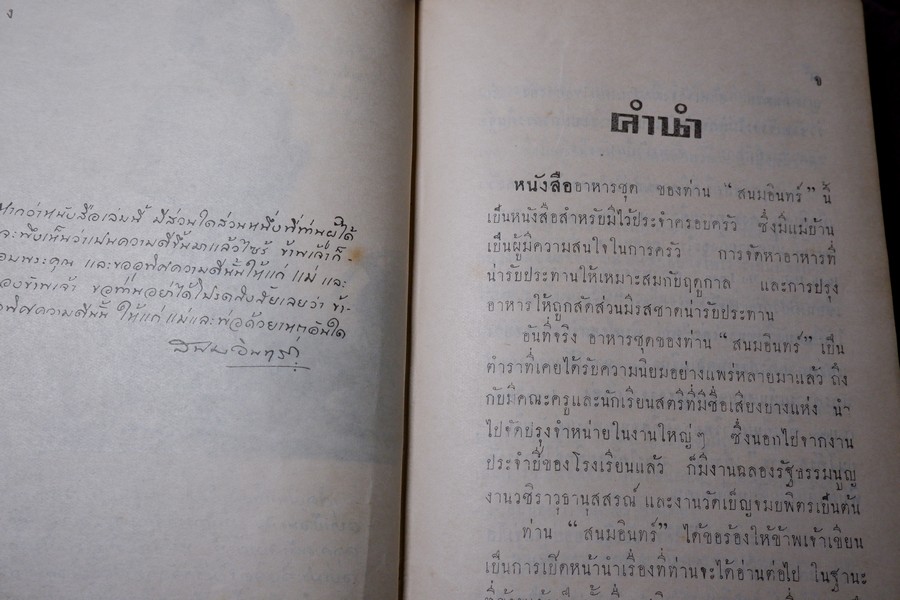 ง
หากว่าหนังสือเล่มนี้ มีส่วนใดส่วนหนึ่งที่ท่านผู้ได้
จะพึงเห็นว่าเป็นความดีขึ้นมาแล้วไซร้ ข้าพเจ้าก็-
อบพระคุณ และขออุทิศความดีนั้นให้แก่ แม่ และ
องข้าพเจ้า ขอท่านอย่าได้โปรดสงสัยเลยว่า ข้า-
ทิศความดีนั้น ให้แก่ แม่และพ่อด้วยเหตุอันใด
สนมอินทร์
ง
คำนำ
หนังสืออาหารชุด ของท่าน “สนมอินทร์” นี้
เป็นหนังสือสำหรับมีไว้ประจำครอบครัว ซึ่งมีแม่บ้าน
เป็นผู้มีความสนใจในการครัว การจัดหาอาหารที่
น่ารับประทานให้เหมาะสมกับฤดูกาล และการปรุง
อาหารให้ถูกสัดส่วนมีรสชาดน่ารับประทาน
อันที่จริง อาหารชุดของท่าน “สนมอินทร์” เป็น
ตำราที่เคยได้รับความนิยมอย่างแพร่หลายมาแล้ว ถึง
กับมีคณะครูและนักเรียนสตรีที่มีชื่อเสียงบางแห่ง นำ
ไปจัดปรุงจำหน่ายในงานใหญ่ๆ ซึ่งนอกไปจากงาน
ประจำปีของโรงเรียนแล้ว ก็มีงานฉลองรัฐธรรมนูญ
งานวชิราวุธานุสสรณ์ และงานวัดเบ็ญจมบพิตรเป็นต้น
ท่าน “สนมอินทร์” ได้ขอร้องให้ข้าพเจ้าเขียน
เป็นการเปิดหน้านำเรื่องที่ท่านจะได้อ่านต่อไป ในฐานะ